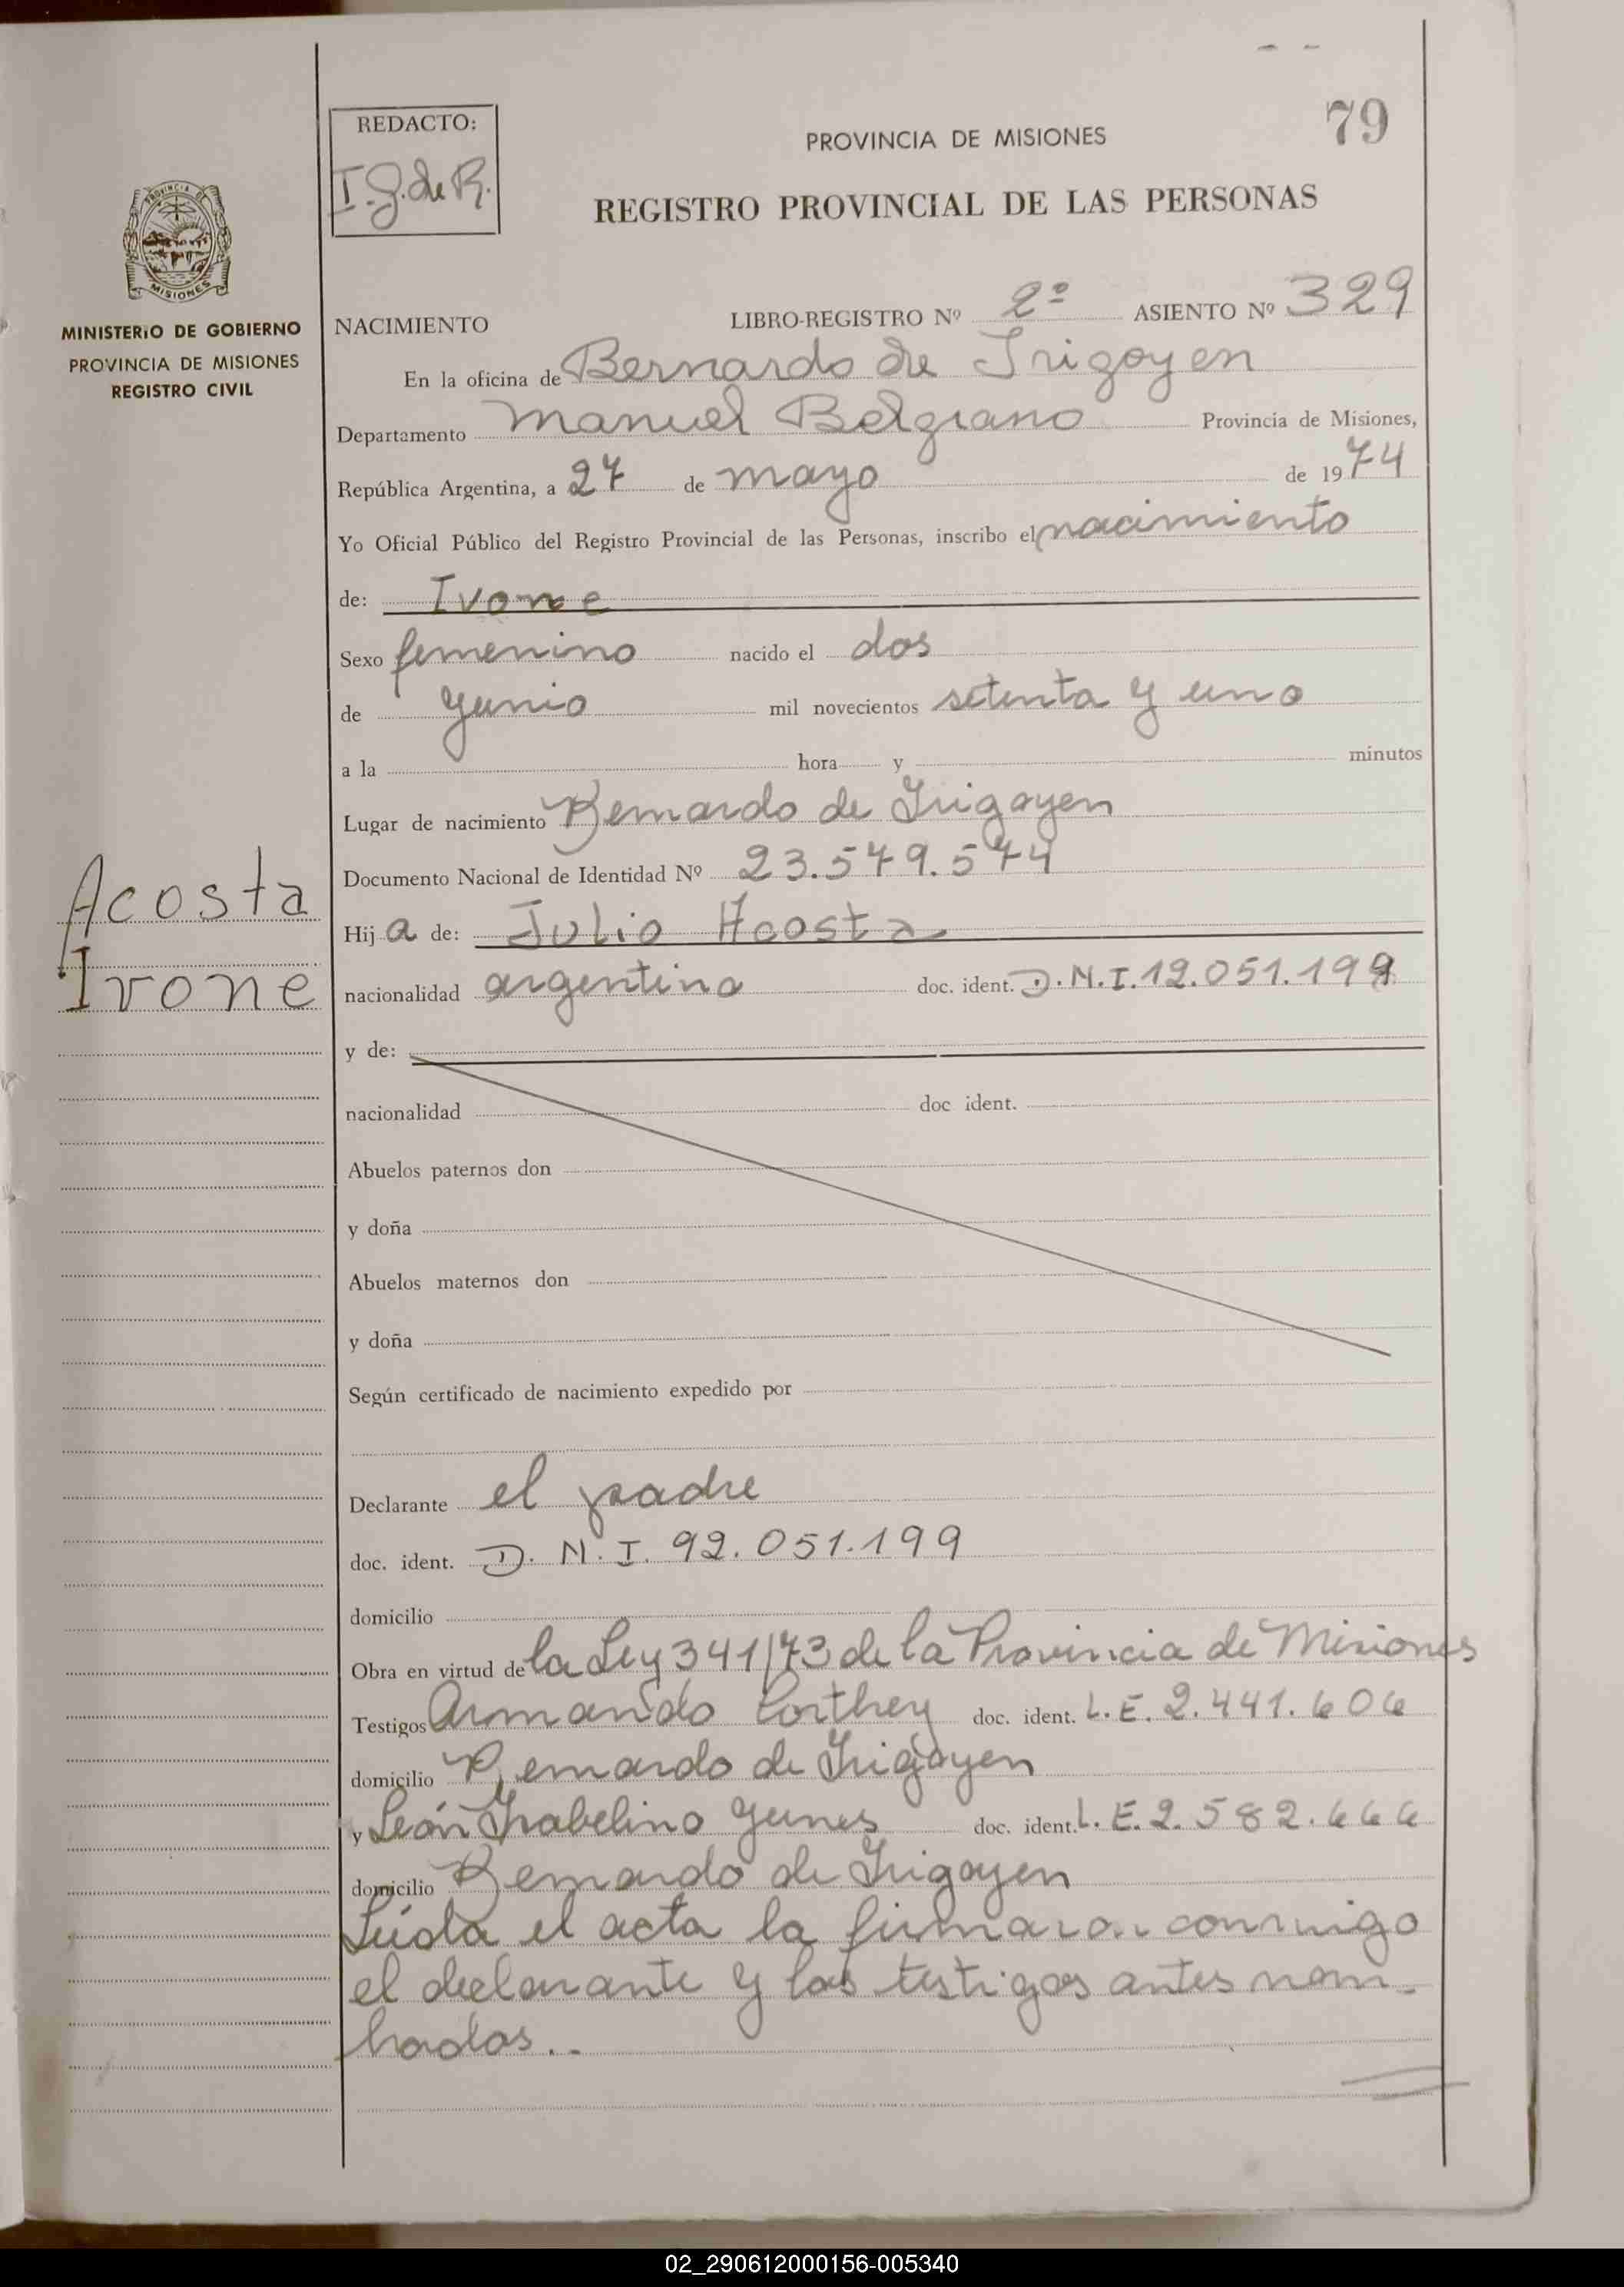 79
REDACTO:
I.G. de R.
PROVINCIA DE MISIONES
REGISTRO PROVINCIAL DE LAS PERSONAS
PROVINCIA DE
MISIONES
MINISTERIO DE GOBIERNO
PROVINCIA DE MISIONES
REGISTRO CIVIL
NACIMIENTO LIBRO-REGISTRO Nº 2º ASIENTO Nº 329
En la oficina de Bernardo de Irigoyen
Departamento Manuel Belgrano Provincia de Misiones,
República Argentina, a 27 de mayo de 1974
Yo Oficial Público del Registro Provincial de las Personas, inscribo el nacimiento
de: Ivone
Sexo femenino nacido el dos
de junio mil novecientos setenta y uno
a la hora y minutos
Lugar de nacimiento Bernardo de Irigoyen
Documento Nacional de Identidad Nº 23.579.574
Acosta
Ivone
Hija de: Julio Acosta
nacionalidad argentina doc. ident. D.N.I. 92.051.199
y de:
nacionalidad doc ident.
Abuelos paternos don
y doña
Abuelos maternos don
y doña
Según certificado de nacimiento expedido por
Declarante el padre
doc. ident. D.N.I. 92.051.199
domicilio
Obra en virtud de la Ley 341/73 de la Provincia de Misiones
Testigos Armando Porthey doc. ident. L.E. 2.441.606
domicilio Bernardo de Irigoyen
y León Isabelino Yunes doc. ident. L.E. 2.582.666
domicilio Bernardo de Irigoyen
Leída el acta la firmaron conmigo
el declarante y los testigos antes nom-
brados..
02_290612000156-005340